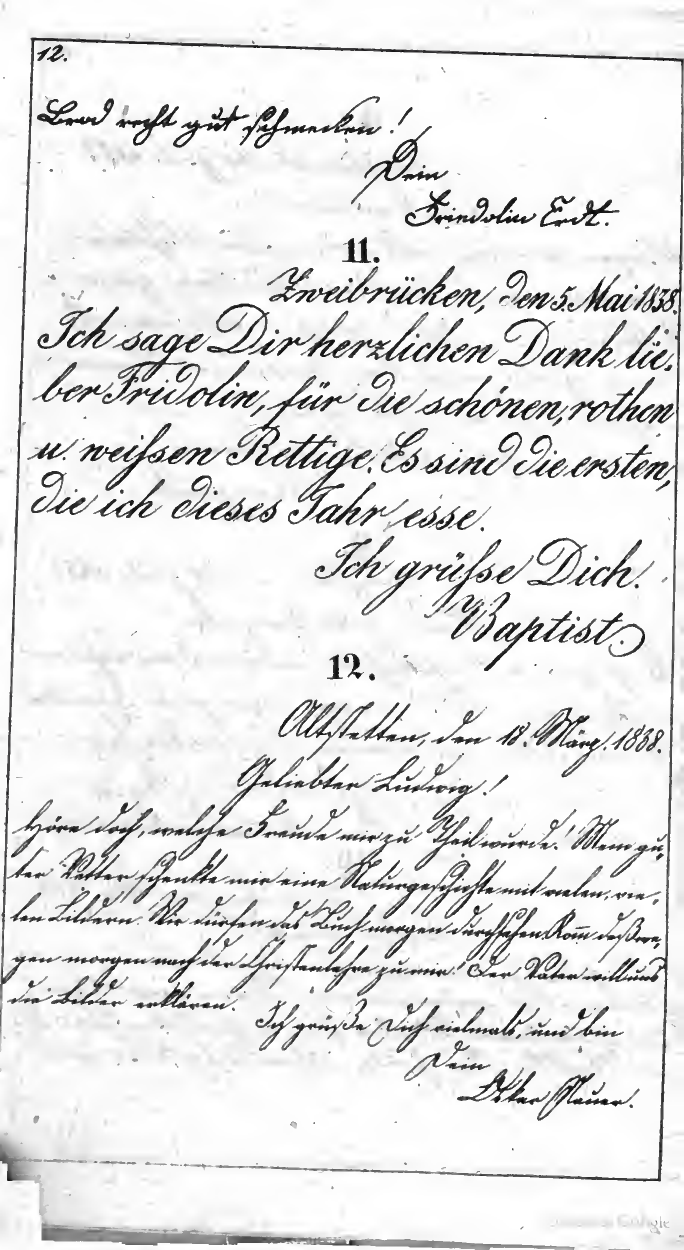 12.
Brod recht gut schmecken!
Dein
Friedolin Erdt.
11.
Zweibrücken, den 5. Mai 1838.
Ich sage Dir herzlichen Dank lie-
ber Fridolin, für die schönen, rothen
u. weißen Rettige. Es sind die ersten,
die ich dieses Jahr esse.
Ich grüße Dich.
Baptist.
12.
Altstetten, den 18. März. 1838.
Geliebter Ludwig!
Höre doch, welche Freude mir zu Theil wurde! Mein gu-
ter Vetter schenkte mir eine Naturgeschichte mit vielen, vie-
len Bildern. Wir dürfen das Buch morgen durchsehen. Kom̄ deßwe-
gen morgen nach der Christenlehre zu mir! Der Vater will uns
die Bilder erklären.
Ich grüße Dich vielmals, und bin
Dein
Oskar
Google